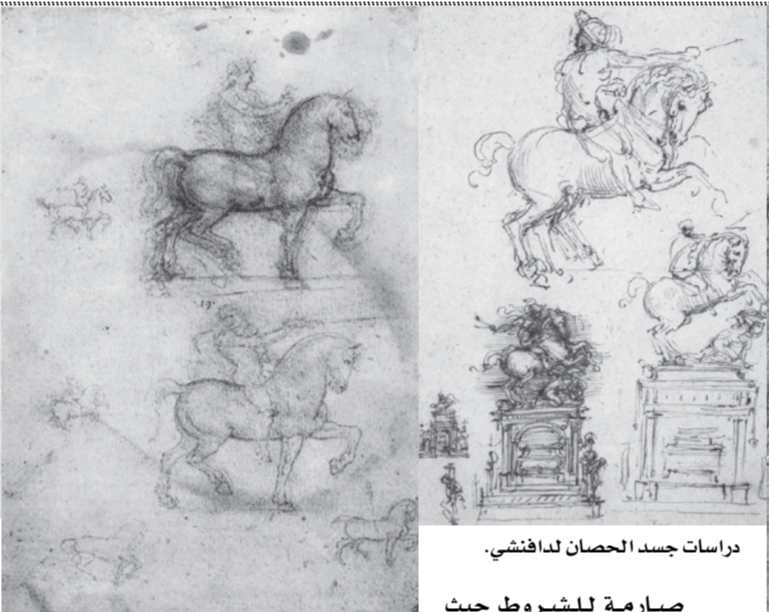 دراسات جسد الحصان لدافنشي.
صارمة للشروط حيث